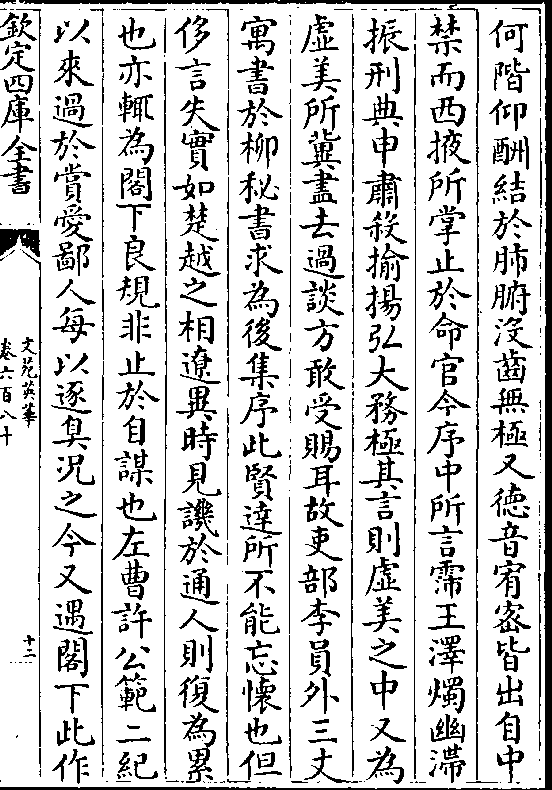 何階仰酬結於肺腑沒齒無極又徳音宥宻皆出自中
禁而西掖所掌止於命官今序中所言霈王澤燭幽滯
振刑典申肅殺揄揚弘大務極其言則虛美之中又為
虛美所冀盡去過談方敢受賜耳故吏部李員外三丈
寓書於柳秘書求為後集序此賢達所不能忘懐也但
侈言失實如楚越之相遼異時見譏於通人則復為累
也亦輙為閣下良規非止於自謀也左曹許公範二紀
以來過於賞愛鄙人每以逐臭況之今又遇閣下此作
欽定四庫全書
文苑英華
卷六百八十
十二